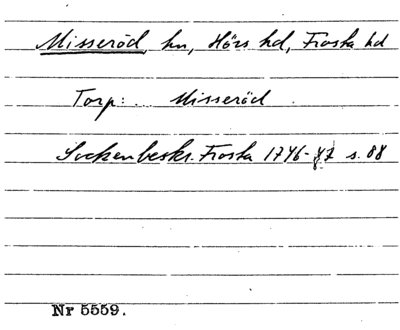 Misseröd, hn, Hörs hd, Frosta hd
Torp: Misseröd
Sockenbeskr. Frosta 1746-87 s. 88
Nr 5559.